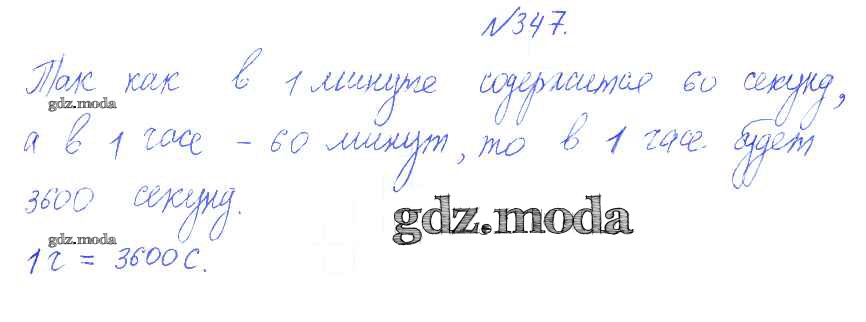 №347.
Так как в 1 минуте содержится 60 секунд,
gdz.moda
а в 1 часе - 60 минут, то в 1 часе будет
3600 секунд.
gdz.moda
gdz.moda
1ч = 3600с.